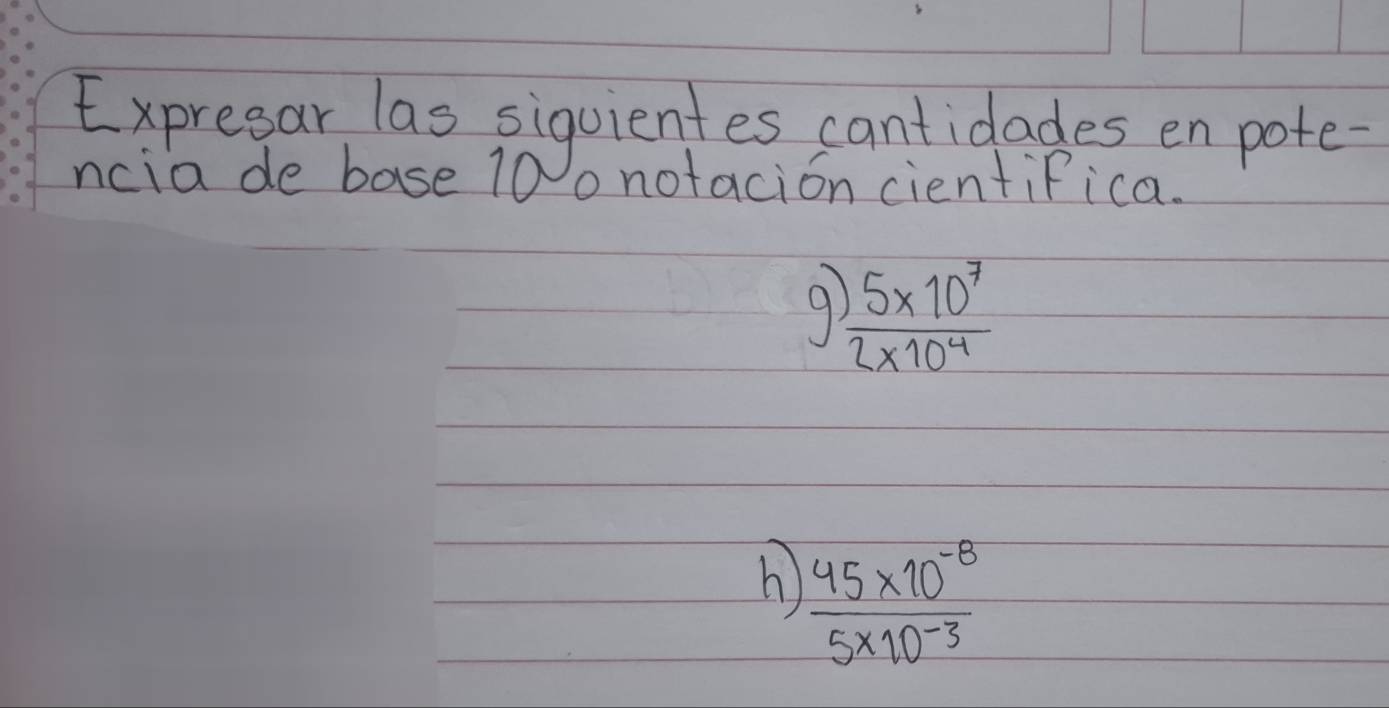 Expresar las siguientes cantidades en pote-
ncia de base 10 o notación cientifica.
g) 5x10⁷
2x10⁴
h) 45x10⁻⁸
5x10⁻³